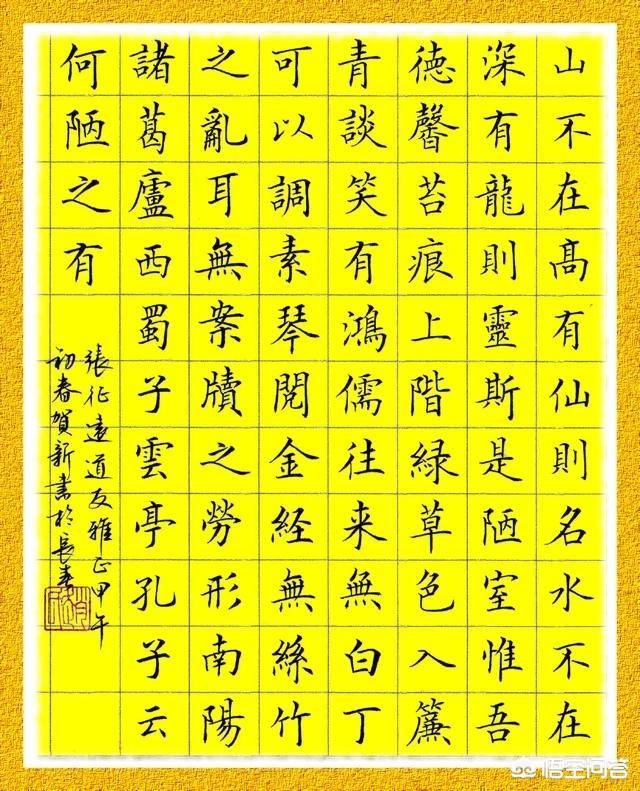 山不在髙有仙則名水不在
深有龍則靈斯是陋室惟吾
德馨苔痕上階緑草色入簾
青談笑有鴻儒往来無白丁
可以調素琴閲金経無絲竹
之亂耳無案牘之勞形南陽
諸葛廬西蜀子雲亭孔子云
何陋之有
張征遠道友雅正甲午
初春賀新書於長春
悟空问答